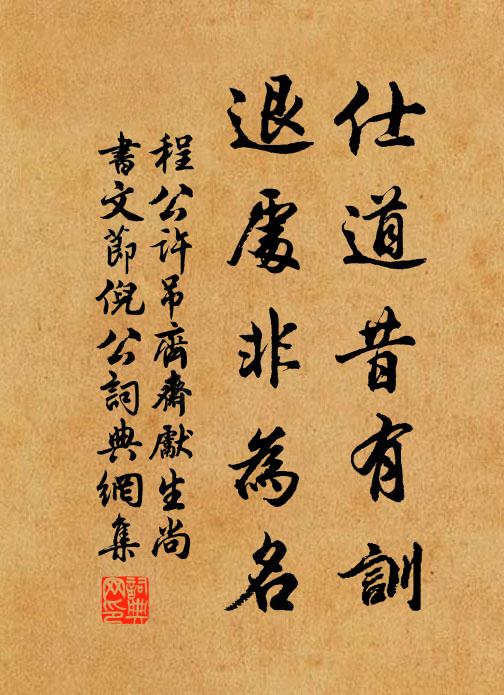 仕道昔有訓
退處非為名
程公許吊齊齋獻生尚
書文節倪公詞典網集
詞典網印